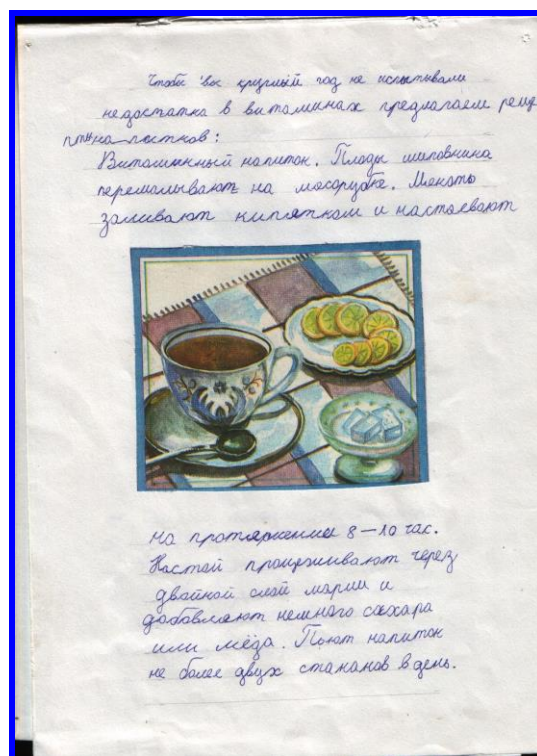 Чтобы вы круглый год не испытывали
недостатка в витаминах предлагаем реце
пты напитков:
Витаминный напиток. Плоды шиповника
перемалывают на мясорубке. Мякоть
заливают кипятком и настаевают
на протяжении 8-10 час.
Настой процеживают через
двойной слой марли и
добавляют немного сахара
или мёда. Пьют напиток
не более двух стаканов в день.